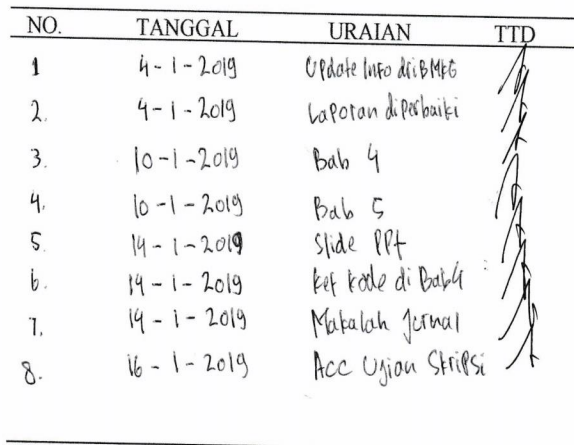 NO. TANGGAL URAIAN TTD
1 4-1-2019 Update Info dri BMKG
2. 4-1-2019 Laporan diperbaiki
3. 10-1-2019 Bab 4
4. 10-1-2019 Bab 5
5. 14-1-2019 Slide PPt
6. 14-1-2019 ket kode di Bab4
7. 14-1-2019 Makalah Jurnal
8. 16-1-2019 Acc Ujian Skripsi